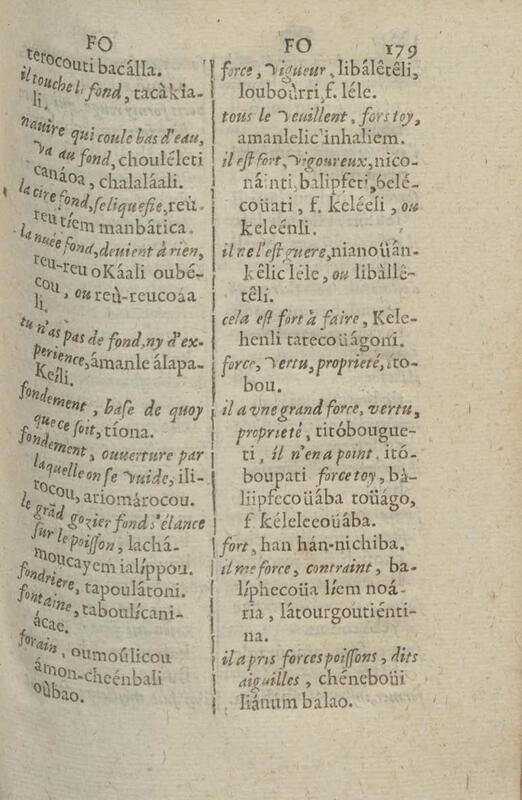 FO
terocouti bacálla.
il touche le fond, tacàkia-
li.
nauire qui coule bas d'eau,
va au fond, chouléleti
canáoa, chalaláali.
la cire fond, se liquefie, reù-
reu tíem manbática.
la nuée fond, deuient à rien,
reu-reu oKáali oubé-
cou, ou reù-reucoáa
li.
tu n'as pas de fond, ny d'ex-
perience, ámanle álapa-
Keíli.
fondement, base de quoy
que ce soit, tíona.
fondement, ouuerture par
laquelle on se vuide, ili-
rocou, ariomárocou.
le grãd gozier fond s'élance
sur le poisson, lachá-
moucayem ialíppou.
fondriere, tapoulátoni.
fontaine, taboulícani-
ácae.
forain, oumoûlicou
ámon-cheénbali
oùbao.
FO 179
force, vigueur, libálêtêli,
louboùrri, f. léle.
tous le veuillent, fors toy,
amanlelic inhaliem.
il est fort, vigoureux, nico-
náinti, balipfeti, belé-
coüati, f. keléeli, ou
keleénli.
il ne l'est guere, nianoüán-
kêlic léle, ou libàllê-
têli.
cela est fort à faire, Kele-
henli tatecoüágoni.
force, vertu, proprieté, ito-
bou.
il a vne grand force, vertu,
proprieté, titóbougue-
ti, il n'en a point, itó-
boupati force toy, bà-
liipfecoüába toüágo,
f kéleleeoüába.
fort, han hán-nichiba.
il me force, contraint, ba-
líphecoüa líem noá-
ria, látourgoutiénti-
na.
il a pris forces poissons, dits
aiguilles, chéneboüi
liánum balao.